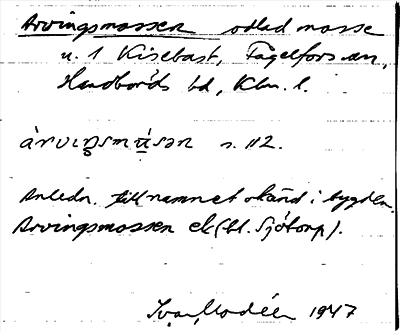 Arvingsmossen odlad mosse
u. 1 Kisebast, Fågelfors sn,
Handbörds hd, Klm. l.
s. 112.
Anledn. till namnet okänd i bygden.
Arvingsmossen ek (bl. Sjötorp).
Ivar Modéer 1947